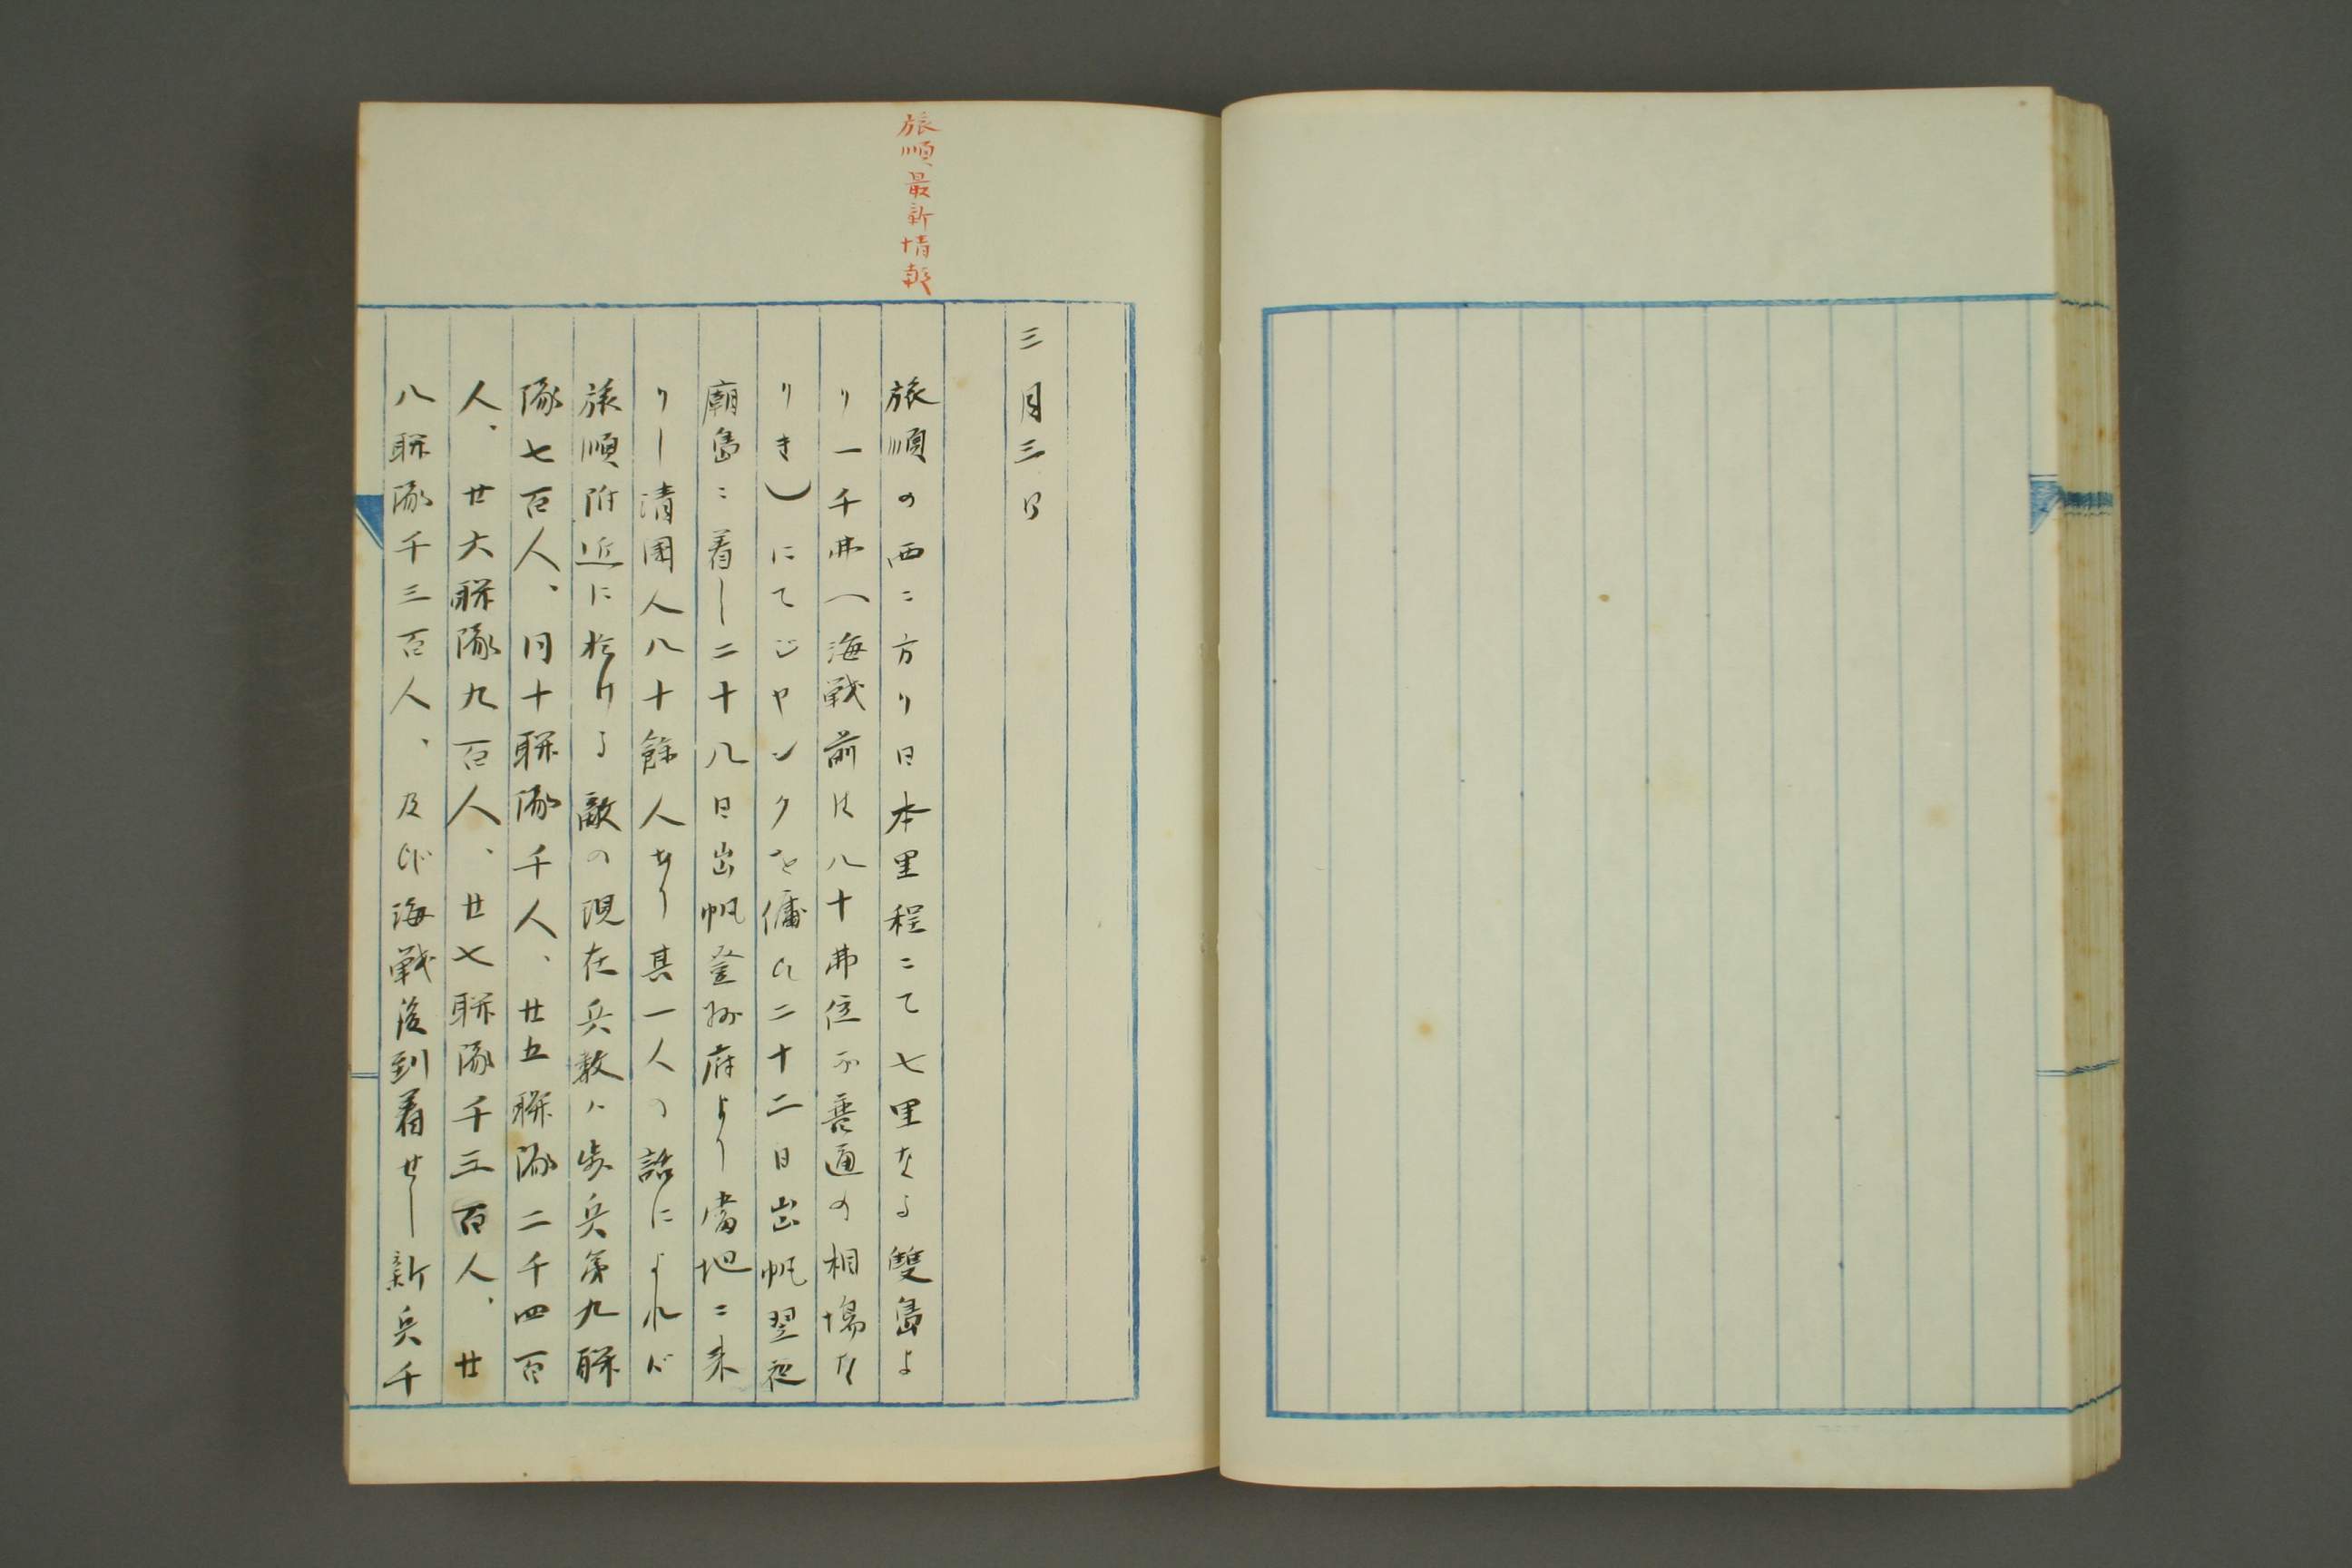 旅順最新情報
三月三日
旅順の西ニ方リ日本里程ニて七里なる雙島よ
り一千弗（海戦前は八十弗位が普通の相場な
りき）にてジヤンクを傭ひ二十二日出帆翌夜
廟島ニ着し二十八日出帆登州府より當地ニ来
りし清国人八十餘人あり其一人の話によれバ
旅順附近に於ける敵の現在兵数ハ歩兵第九聯
隊七百人、同十聯隊千人、廿五聯隊二千四百
人、廿六聯隊九百人、廿七聯隊千三百人、廿
八聯隊千三百人、及び海戦後到着せし新兵千